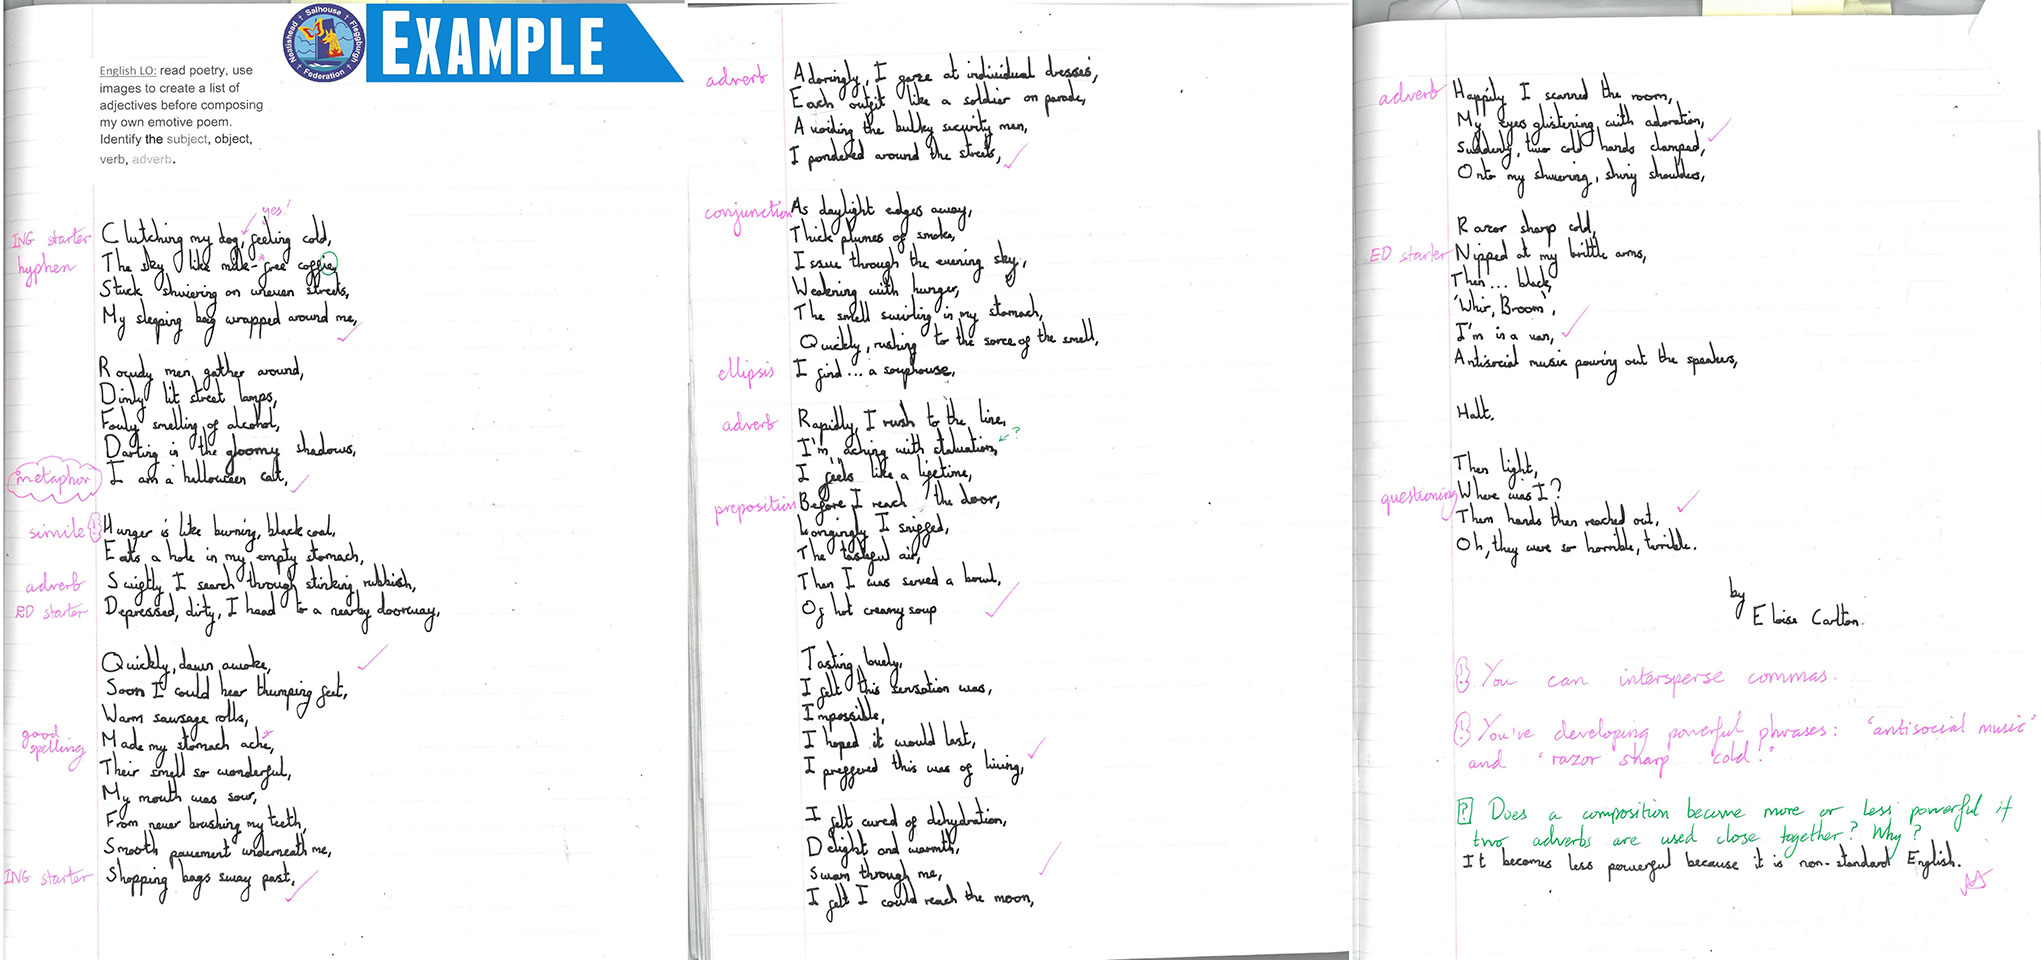 Neatishead
Salhouse
Fleggburgh
Federation
EXAMPLE
English LO: read poetry, use
images to create a list of
adjectives before composing
my own emotive poem.
Identify the subject, object,
verb, adverb.
yes!
ING starter
Clutching my dog, feeling cold,
hyphen
The sky like milk-free coffie,
Stuck shivering on uneven streets,
My sleeping bag wrapped around me,
Rowdy men gather around,
Dimly lit street lamps,
Fouly smelling of alcohol,
Darting in the gloomy shadows,
metaphor
I am a halloween cat,
simile !
Hunger is like burning, black coal,
Eats a hole in my empty stomach,
adverb
Swiftly I search through stinking rubbish,
ED starter
Depressed, dirty, I head to a nearby doorway,
Quickly, dawn awoke,
Soon I could hear thumping feet,
Warm sausage rolls,
good spelling
Made my stomach ache,
Their smell so wonderful,
My mouth was sour,
From never brushing my teeth,
Smooth pavement underneath me,
ING starter
Shopping bags sway past,
adverb
Adoringly, I gaze at individual dresses,
Each outfit like a soldier on parade,
Avoiding the bulky security men,
I pondered around the streets,
conjunction
As daylight edges away,
Thick plumes of smoke,
Issue through the evening sky,
Weakening with hunger,
The smell swirling in my stomach,
Quickly, rushing to the sorce of the smell,
ellipsis
I find... a souphouse,
adverb
Rapidly, I rush to the line,
I'm aching with stalvation, ?
I feels like a lifetime,
preposition
Before I reach the door,
Longingly I sniffed,
The tasteful air,
Then I was served a bowl,
Of hot creamy soup
Tasting lovely,
I felt this sensation was,
Impossible,
I hoped it would last,
I preffered this was of living,
I felt cured of dehydration,
Delight and warmth,
Swam through me,
I felt I could reach the moon,
adverb
Happily I scanned the room,
My eyes glistening with adoration,
Suddenly, two cold hands clamped,
Onto my shivering, shiny shoulders,
Razor sharp cold,
ED starter
Nipped at my brittle arms,
Then... black,
'Whir, Broom',
I'm in a van,
Antisocial music pouring out the speakers,
Halt.
Then light,
questioning
Where was I?
Them hands then reached out,
Oh, they were so horrible, terrible.
by
Eloise Carlton.
! You can intersperse commas.
! You've developing powerful phrases: 'antisocial music'
and 'razor sharp cold!'
? Does a composition become more or less powerful if
two adverbs are used close together? Why?
It becomes less powerful because it is non-standard English.